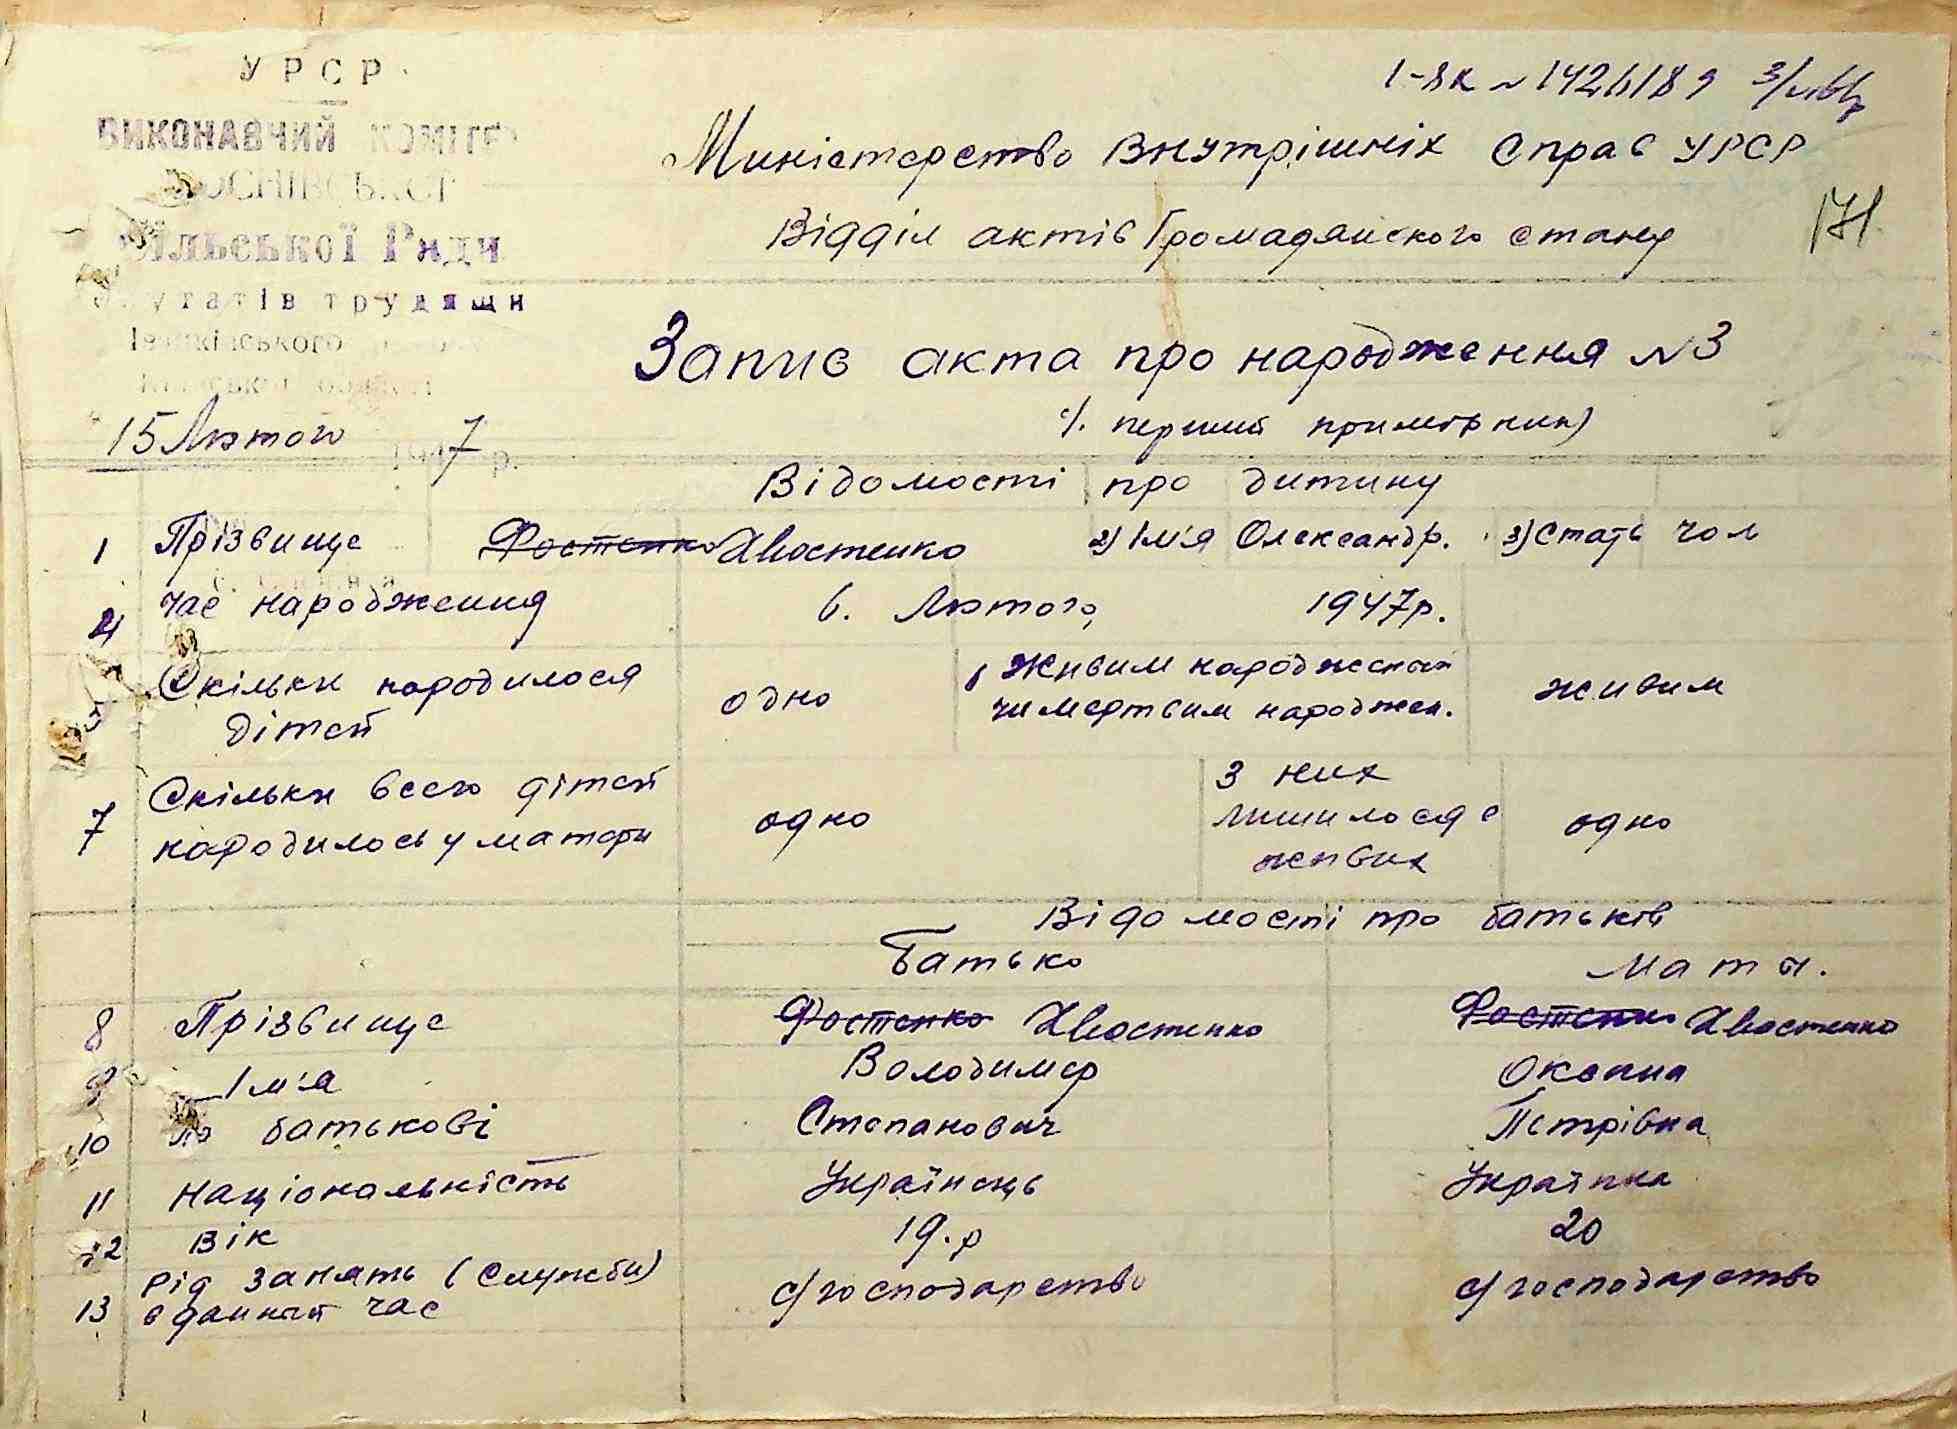 УРСР
ВИКОНАВЧИЙ КОМІТЕ
Сільської Ради
депутатів трудящи
15 Лютого 1947 р.
І-ЯК № 142618
171.
Міністерство Внутрішніх Справ УРСР
Відділ актів Громадянского стану
Запис акта про народження №3
(перший примірник)
Відомості про дитину
1 Прізвище Фостенко Хвостенко 2) Ім'я Олександр. 3) Стать чол
4 час народження 6. Лютого, 1947р.
5 Скільки народилося дітей одно 6 Живим народженой чи мертвим народжен. живим
7 Скільки всего дітей народилось у матери одно З них лишилося є живих одно
Відомості про батьків
Батько Мати.
8 Прізвище Фостенко Хвостенко Фостенко Хвостенко
9 Ім'я Володимер Оксана
10 по батькові Степанович Петрівна
11 Національність Українець Українка
12 Вік 19.р 20
13 Рід занять (служби) в данный час с/господарство с/господарство